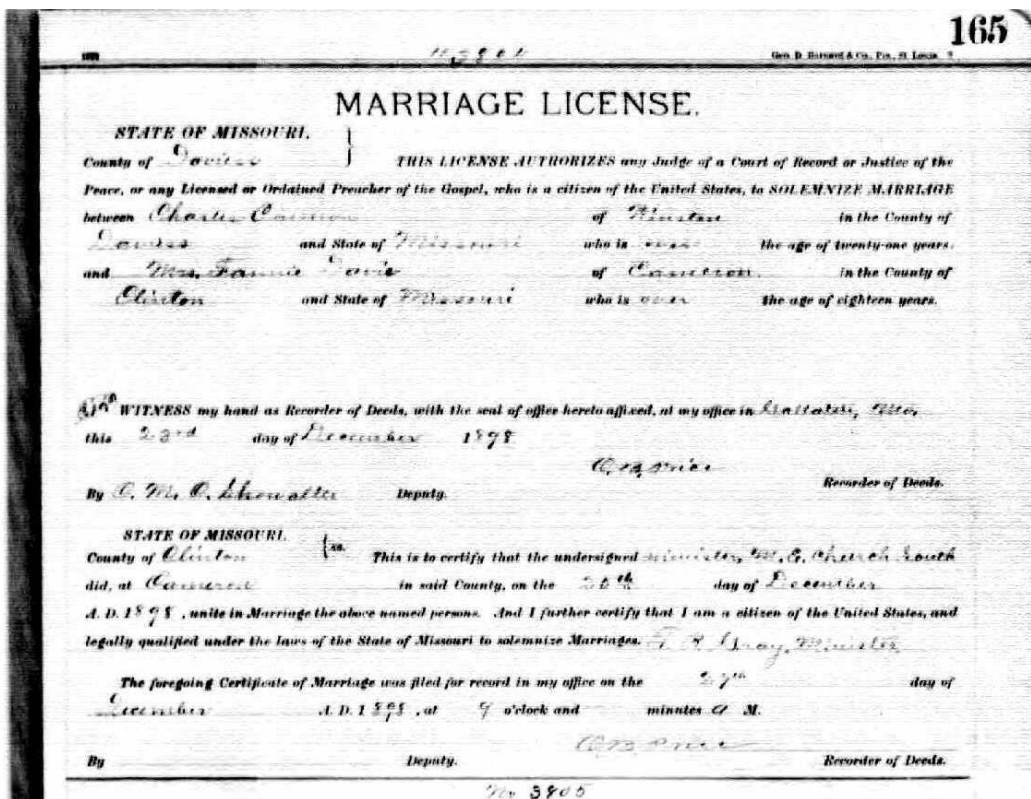 165
No 3804 Geo. D. Barnard & Co., Pts., St. Louis
MARRIAGE LICENSE.
STATE OF MISSOURI,
County of Daviess } THIS LICENSE AUTHORIZES any Judge of a Court of Record or Justice of the
Peace, or any Licensed or Ordained Preacher of the Gospel, who is a citizen of the United States, to SOLEMNIZE MARRIAGE
between Charles of Winston in the County of
Daviess and State of Missouri who is over the age of twenty-one years.
and Mrs. Fannie Davis of Cameron in the County of
Clinton and State of Missouri who is over the age of eighteen years.
WITNESS my hand as Recorder of Deeds, with the seal of office hereto affixed, at my office in Gallatin, Mo,
this 23rd day of December 1898
O.B. Price
By O. M. O. Showalter Deputy. Recorder of Deeds.
STATE OF MISSOURI,
County of Clinton } ss. This is to certify that the undersigned minister, M. E. Church South
did, at Cameron in said County, on the day of December
A. D. 1898, unite in Marriage the above named persons. And I further certify that I am a citizen of the United States, and
legally qualified under the laws of the State of Missouri to solemnize Marriages. Gray, Minister
The foregoing Certificate of Marriage was filed for record in my office on the 27th day of
December A. D. 1898, at 9 o'clock and minutes A M.
O.B. Price
By Deputy. Recorder of Deeds.
No 3805